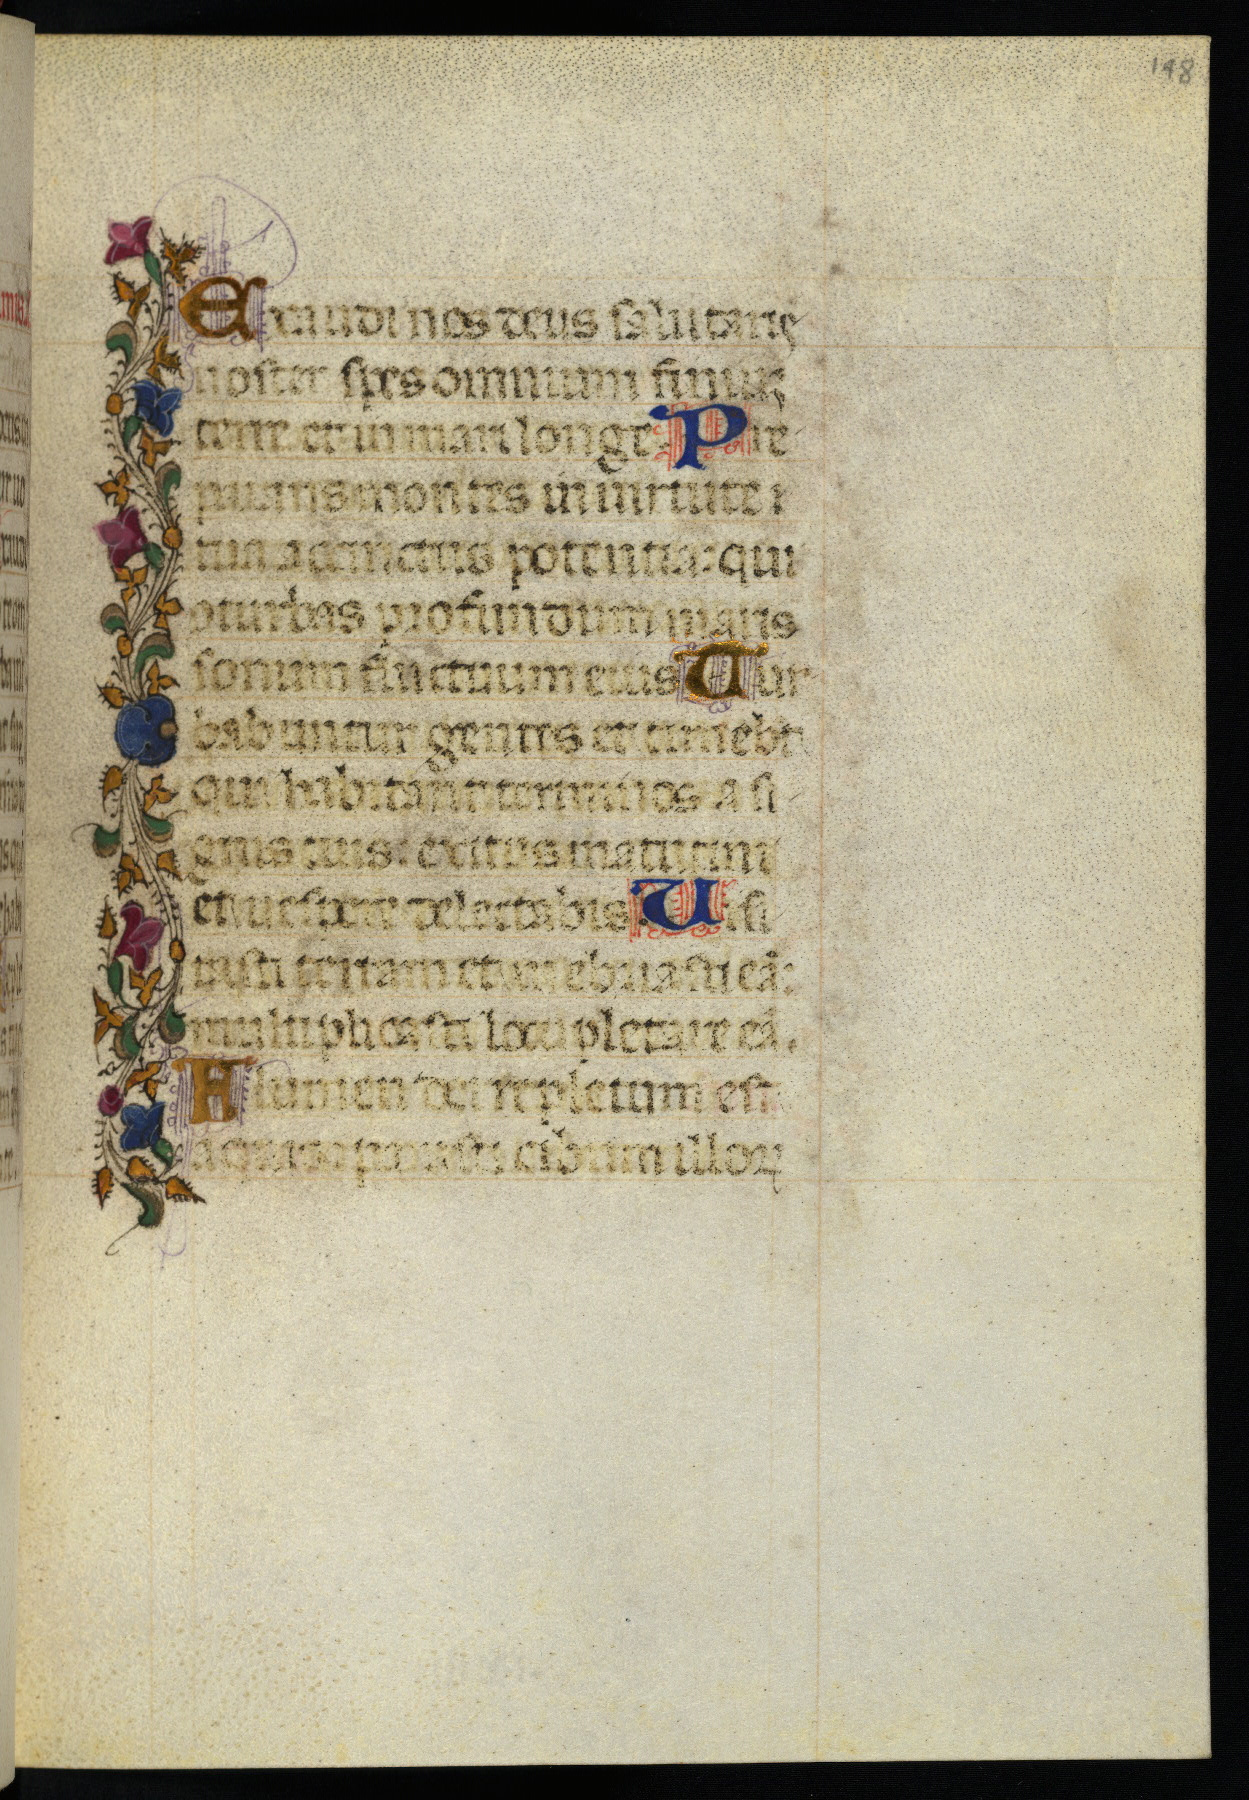 148
Exaudi nos deus salutaris
noster spes omnium finiuꝫ
terre et in mari longe Pre
parans montes in uirtute
tua accinctus potentia: qui
oturbas profundum maris
sonum fluctuum eius Tur
babuntur gentes et timebūt
qui habitant terminos a si
gnis tuis: exitus matutini
et uespere delectabis. Uisi
tasti terram et inebriasti eā:
multiplicasti locupletare eā.
Flumen dei repletum est
aquis parasti cibum illoꝝ